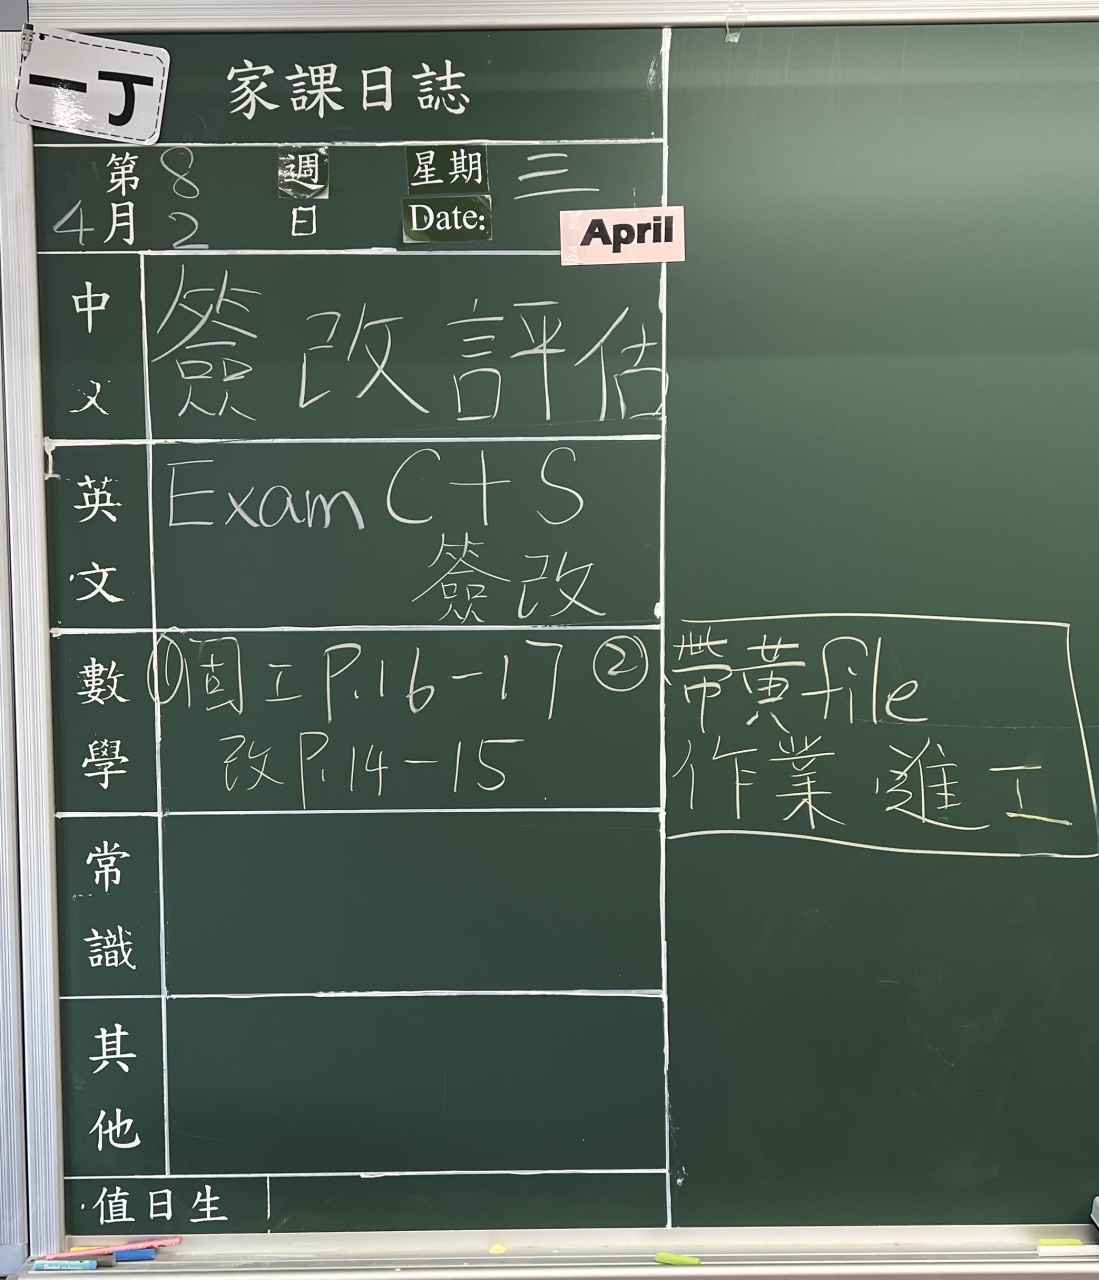 一丁
家課日誌
第 8 週 星期 三
4月 2 日 Date: April
中文 簽改評估
英文 Exam C+S
簽改
數學 ①固工P.16-17 ②
改P.14-15
帶黃file
作業 進工
常識
其他
值日生